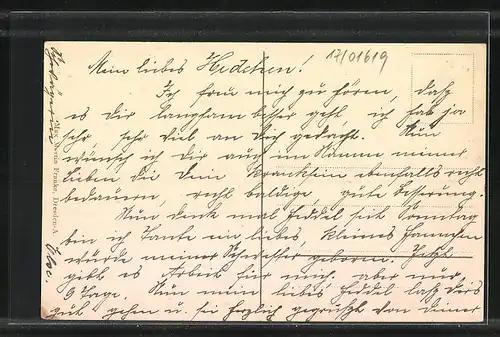 17/01619
Mein liebes Hedchen!
Ich freu mich zu hören, daß
es dir langsam besser geht ich hab ja
sehr, sehr viel an Dich gedacht. Nun
wünsch ich dir auch im Namen meiner
lieben die dein Kranksein ebenfalls recht
bedauern, recht baldige, gute Besserung.
Nun denk mal Heddel seit Sonntag
bin ich Tante ein liebes, kleines
wurde meiner Schwester geboren. Jetzt
gibt es Arbeit für mich. aber nur
9 Tage. Nun mein liebes Heddel laß dirs
gut gehen u. sei herzlich gegrüßt von deiner
Elsc.
Franke, Dresden-A.